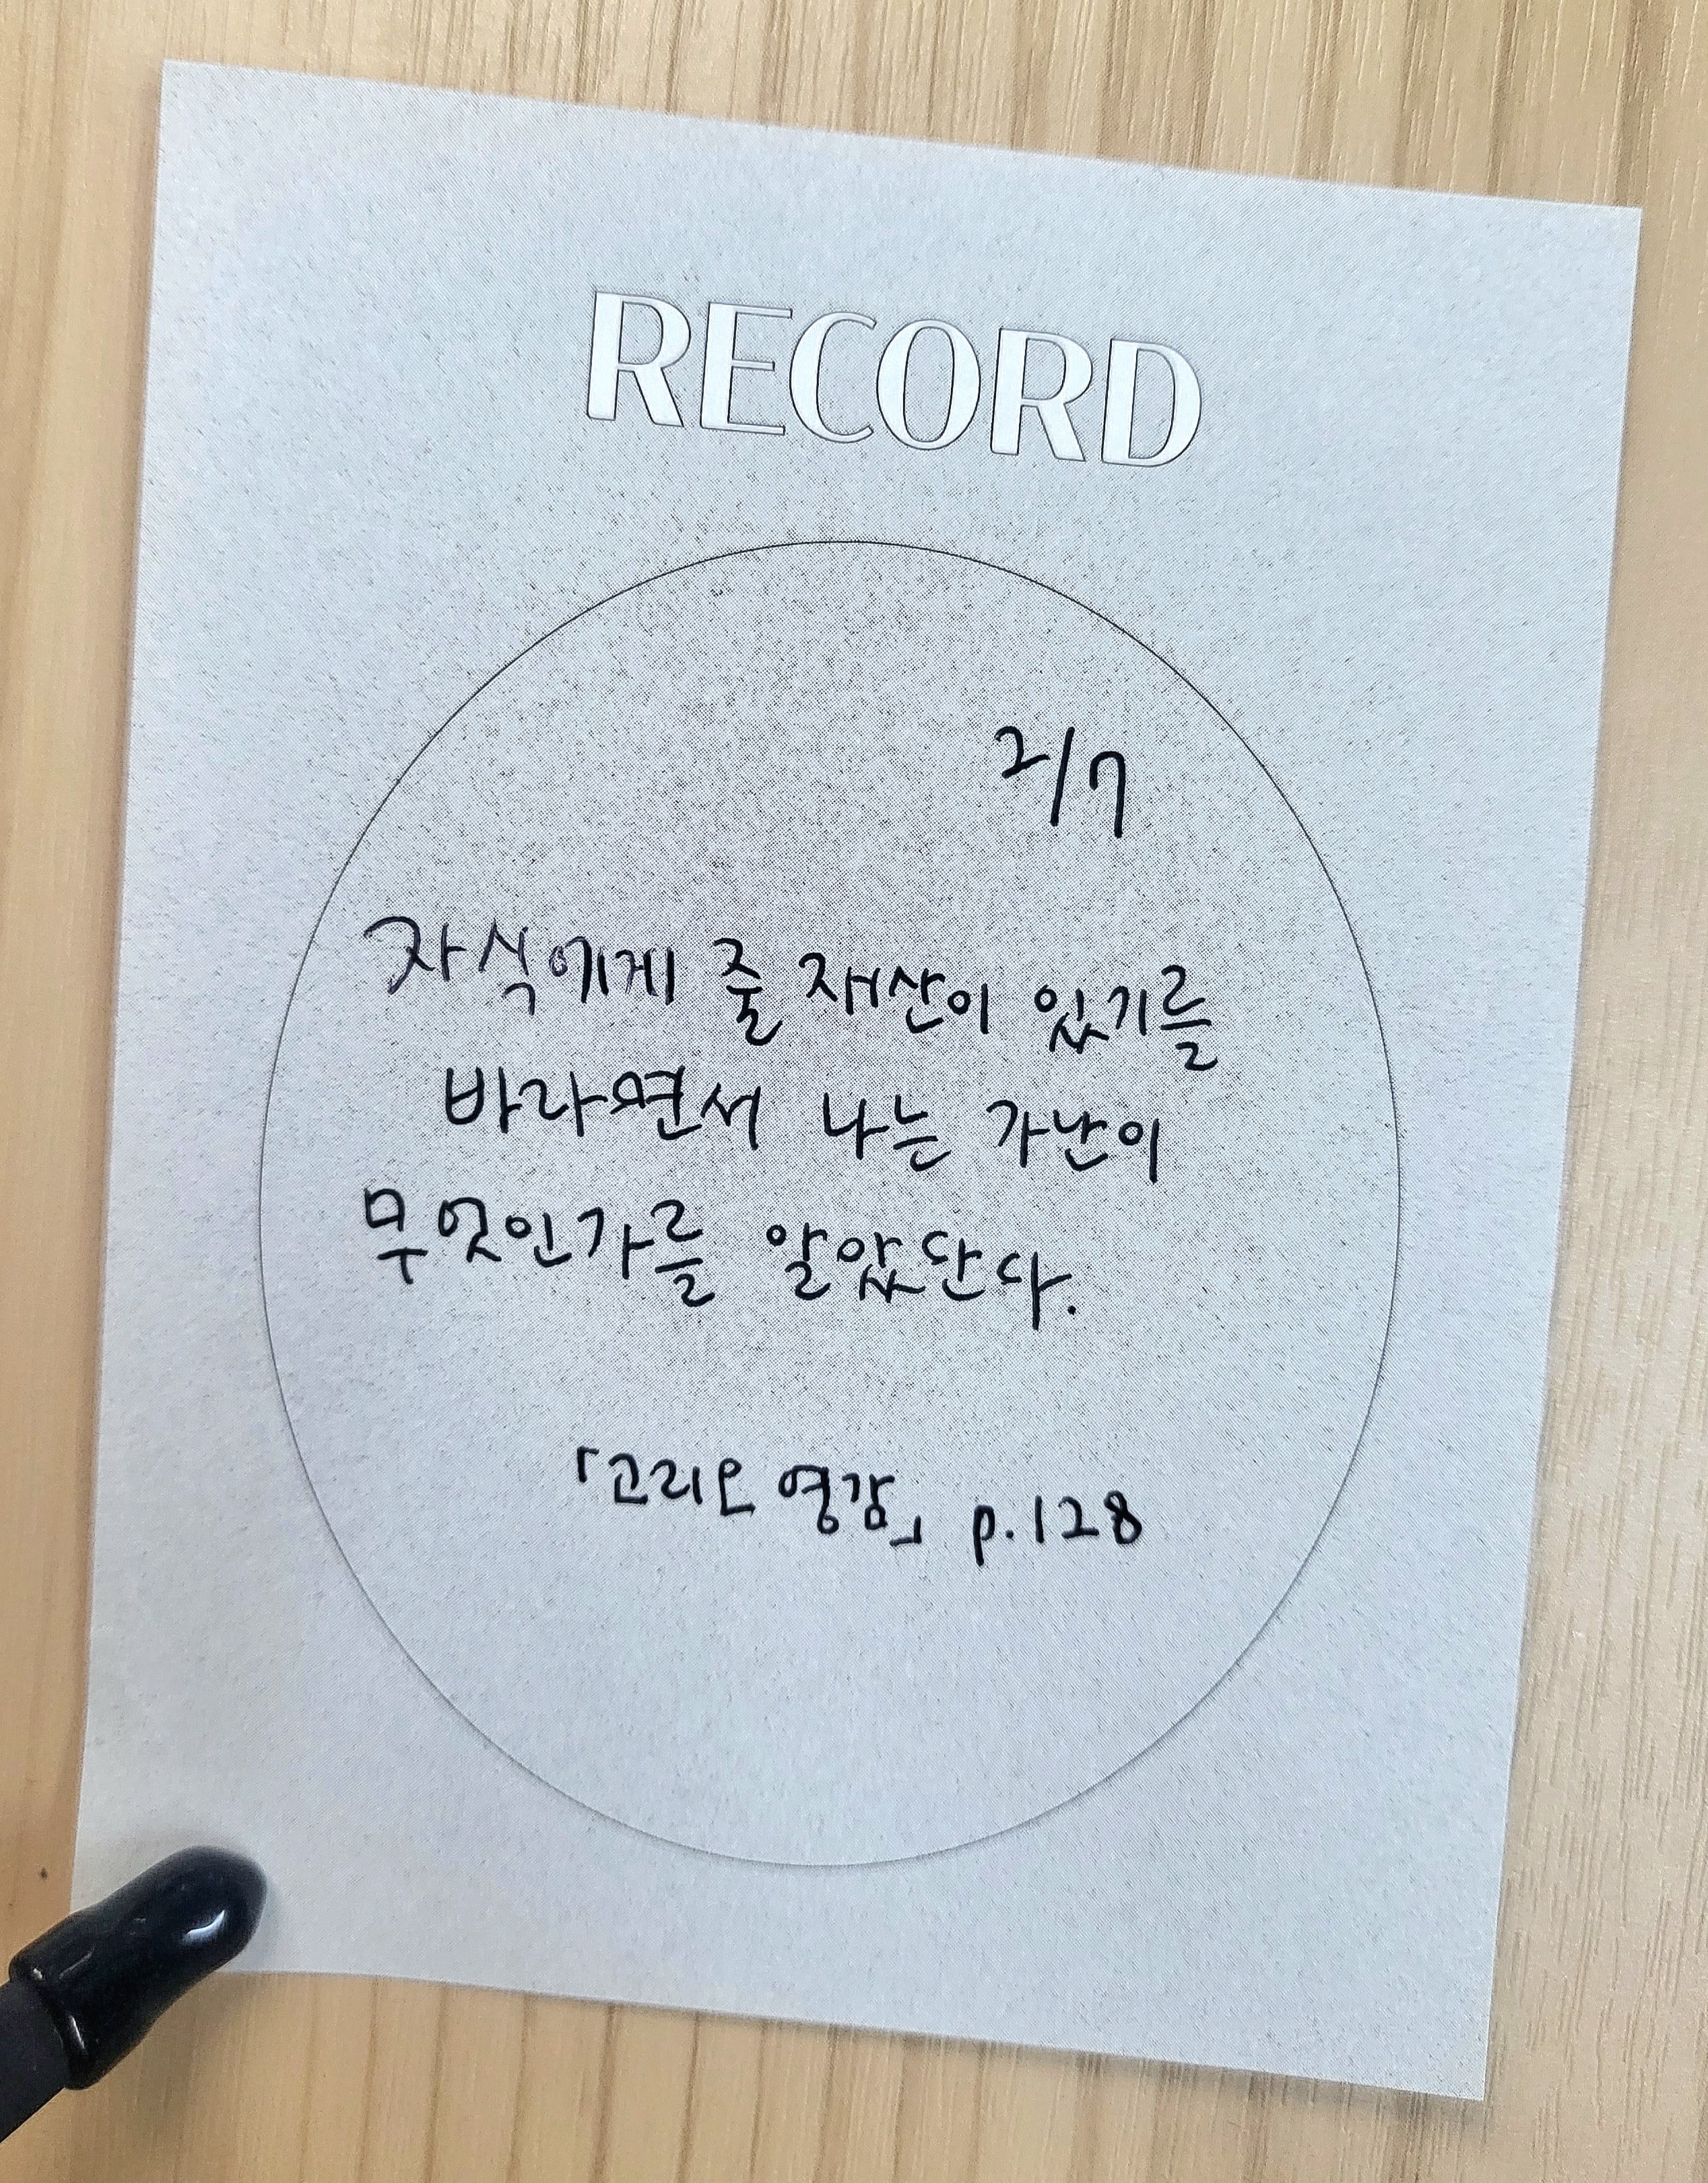 RECORD
2/7
자식에게 줄 재산이 있기를
바라면서 나는 가난이
무엇인가를 알았단다.
「고리오 영감」 p.128